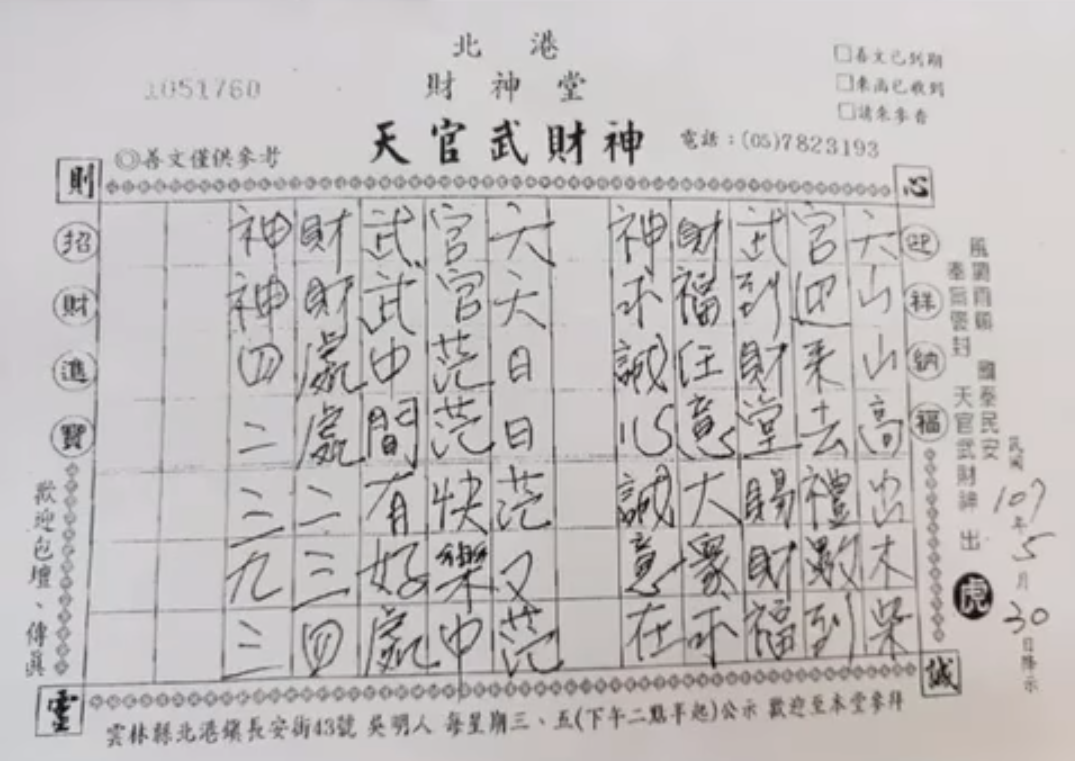 北港
財神堂
天官武財神
1051760
◎善文僅供參考
電話：(05)7823193
□善文已到期
□來函已收到
□請來參香
心則誠靈
迎祥納福
招財進寶
風調雨順 國泰民安
奉旨 天官武財神 出
虎
民國107年5月30日降示
六山山高出木柴
官迎来去禮數到
武到財堂賜財福
財福任意大眾求
神求誠心誠意在
六大日日茫又茫
官官茫茫快樂中
武武中間有好處
財財處處二三四
神神四二三九三
歡迎包壇、傳真
雲林縣北港鎮長安街43號 吳明人 每星期三、五(下午二點半起)公示 歡迎至本堂參拜